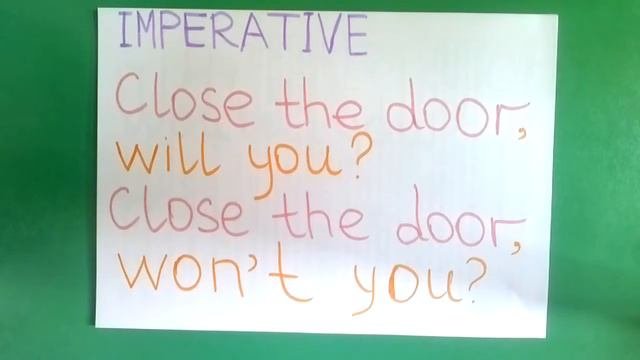 IMPERATIVE
Close the door,
will you?
Close the door,
won't you?